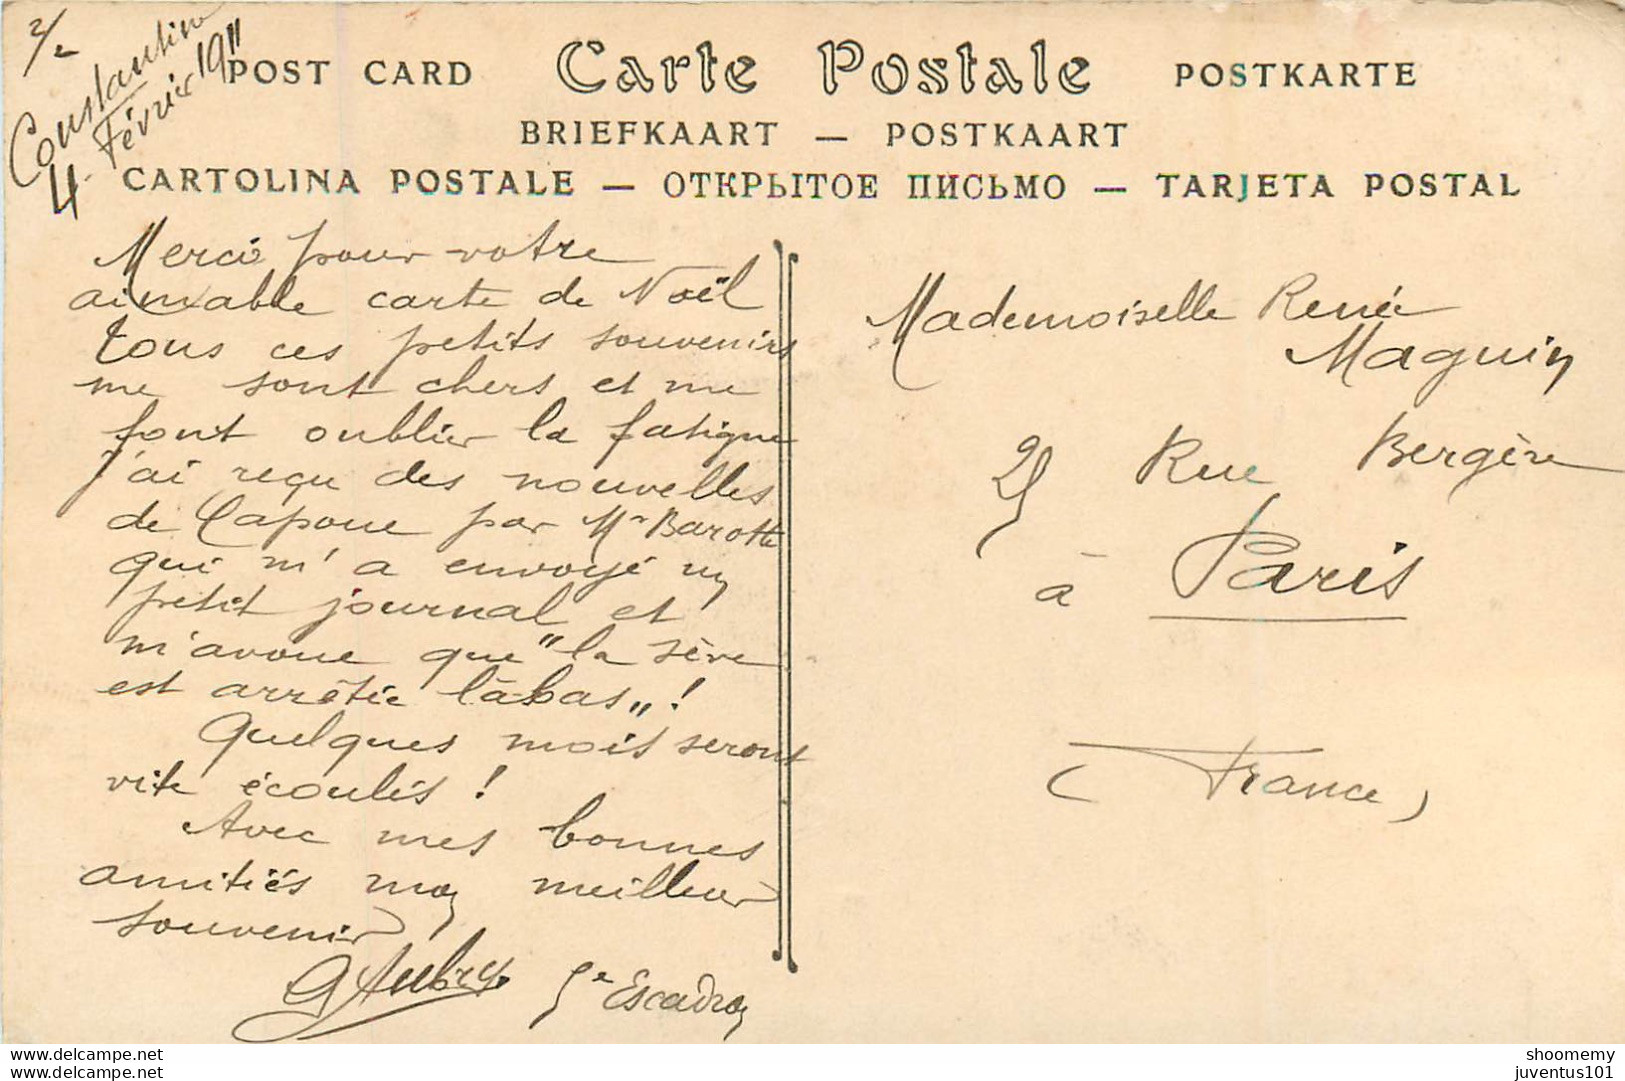 2/2
Constantine
4 Février 1911
POST CARD Carte Postale POSTKARTE
BRIEFKAART — POSTKAART
CARTOLINA POSTALE — ОТКРЫТОЕ ПИСЬМО — TARJETA POSTAL
Merci pour votre
aimable carte de Noël
tous ces petits souvenirs
me sont chers et me
font oublier la fatigue
j'ai reçu des nouvelles
de Capoue par Mr Barotte
qui m'a envoyé un
petit journal et
m'avoue que "la sève
est arrêtée làbas" !
Quelques mois seront
vite écoulés !
Avec mes bonnes
amitiés mon meilleur
souvenir
G Aubry 5e Escadron
Mademoiselle Renée
Maguin
25 Rue Bergère
à Paris
(France)
www.delcampe.com
www.delcampe.com
shoomemy
juventus101